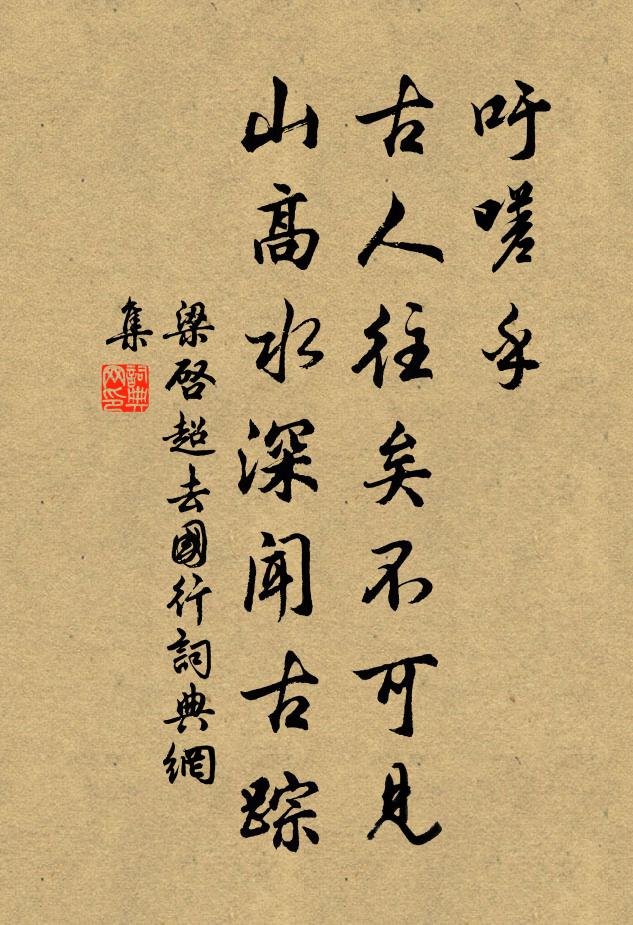 吁嗟乎
古人往矣不可見
山高水深闻古踪
梁啓超去國行詞典網
集
詞典
网印